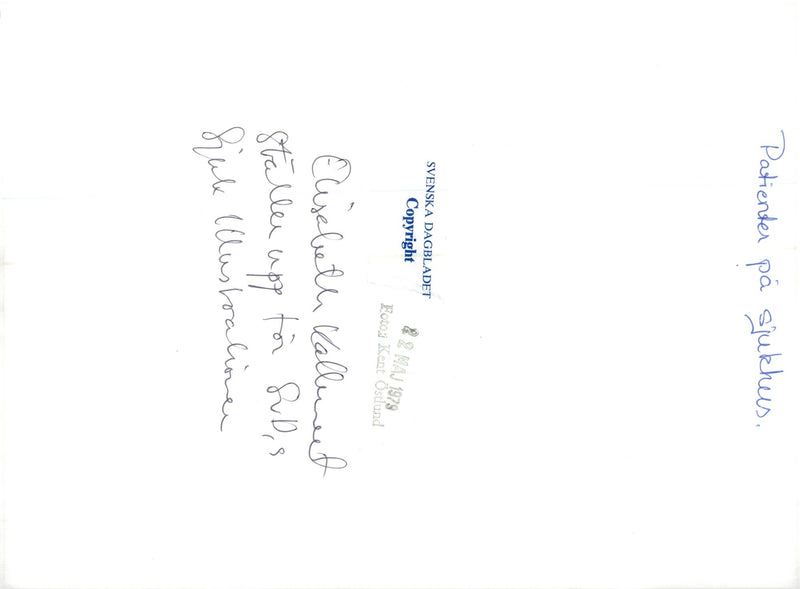 Patienter på sjukhus.
SVENSKA DAGBLADET
Copyright
22 MAJ 1979
Foto: Kent Östlund
Elisabeth
ställer upp för SvD,s
Sjuk illustrationer